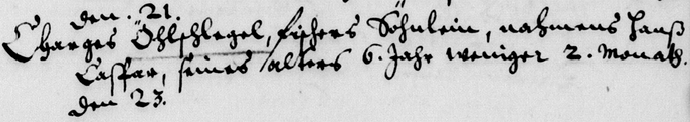 den. 21.
Charges Öhlschlegel, fischers Söhnlein, nahmens Hanß
Casspar, seines alters 6. Jahr weniger 2. Monath.
den 23.